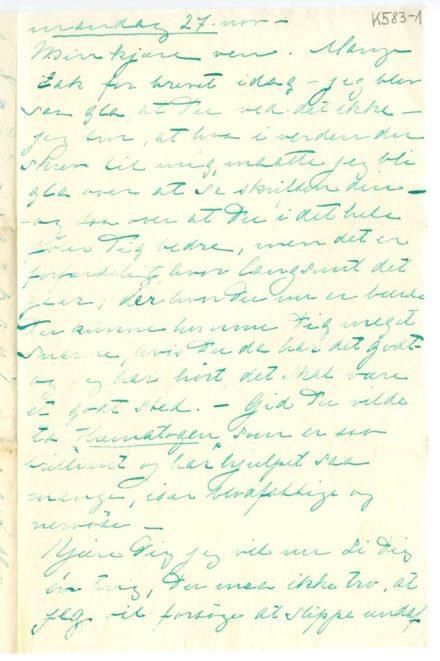 K583-1
mandag 27. nov –
Min kjære ven. Mange
tak for brevet idag – jeg blev
saa gla, at Du ved det ikke –
jeg tror, at hva i verden du
skrev til mig, maatte jeg bli
gla over at se skriften din –
og saa over at Du i det hele
føler Dig bedre, men det er
forfærdeligt, hvor langsomt det
gaar; der hvor Du nu er burde
Du kunne komme Dig meget
snarere, hvis Du da har det godt –
og jeg har hørt, det skal være
et godt sted. – Gid Du vilde
ta Hæmatogen, som er saa
brilliant og har hjulpet saa
mange, især blodfattige og
nervøse –
Kjære Dig jeg vil nu si Dig
én ting, Du maa ikke tro, at
jeg vil forsøge at slippe undaf